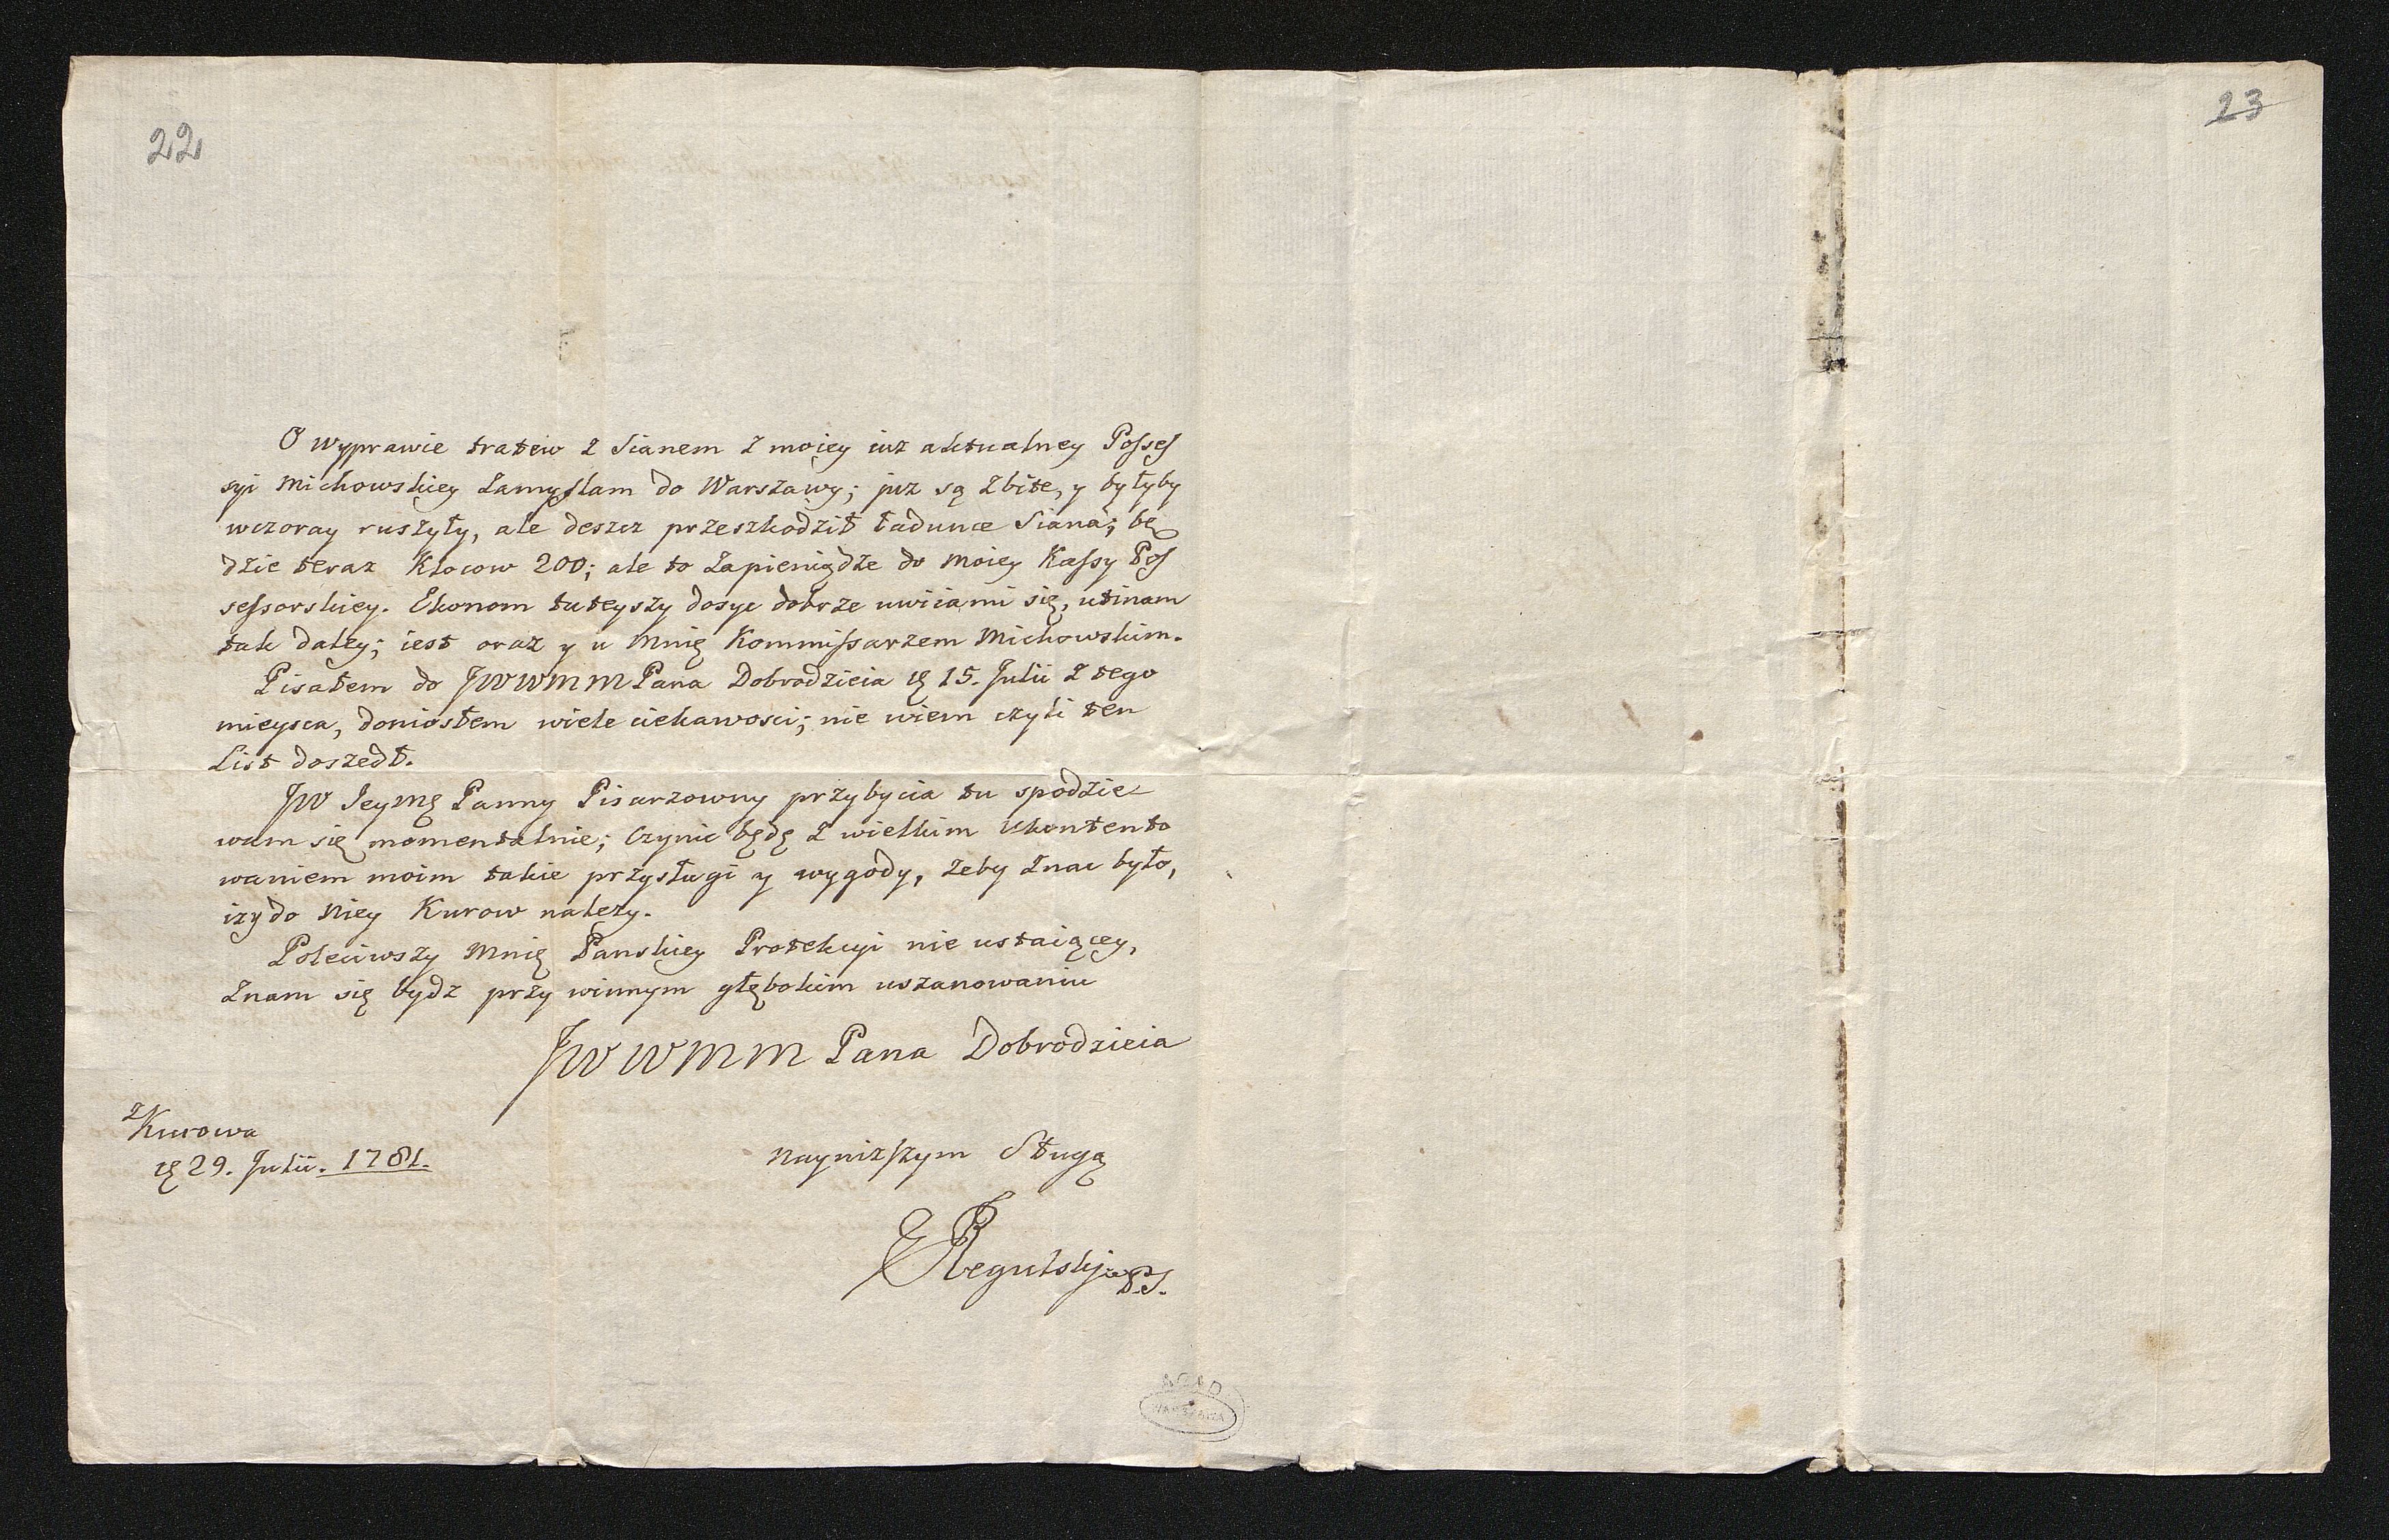 22
23
O wyprawie tratew z Sianem z moiey iuz aktualney Posses
syi Michowskiey zamyslam do Warszawy; juz są zbite, y byłyby
wczoray ruszyły, ale deszcz przeszkodził ładunce Siana; bę
dzie teraz Klocow 200; ale to za pieniądze do moiey Kassy Pos
sessorskiey. Ekonom tuteyszy dosyc dobrze uwiia mi się, utinam
tak daley; iest oraz y u mnię Kommissarzem Michowskim.
Pisałem do JWWMM Pana Dobrodzieia 15. Julii z tego
mieysca, doniosłem wiele ciekawosci; nie wiem czyli ten
List doszedł.
JW Jeymę Panny Pisarzowny przybycia tu spodzie
wam się momentalnie; Czynic będę z wielkim Ukontento
waniem moim takie przysługi y wygody, zeby znac było,
izy do Niey Kurow nalezy.
Poleciwszy mnię Panskiey Protekcyi nie ustaiącey,
znam się bydz przy winnym głębokim uszanowaniu
JWWMM Pana Dobrodzieia
z Kurowa
29. Julii. 1781.
nayniższym Sługą
Regulski
AGAD
WARSZAWA